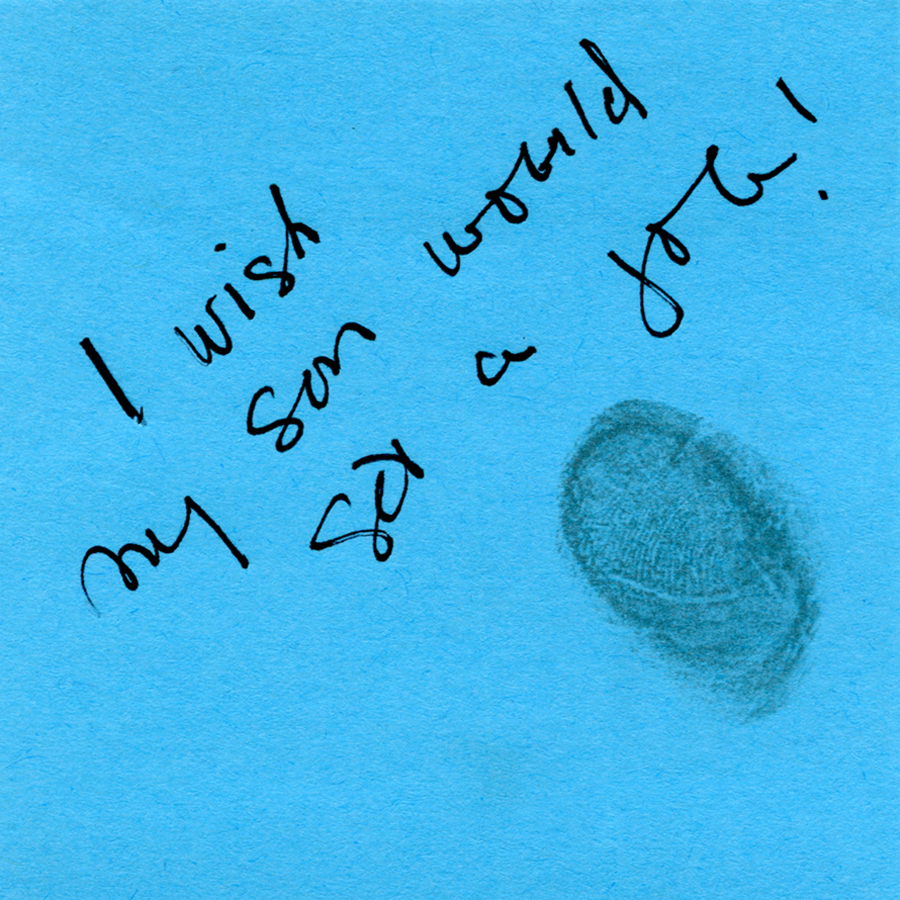 I wish
my son would
get a job!